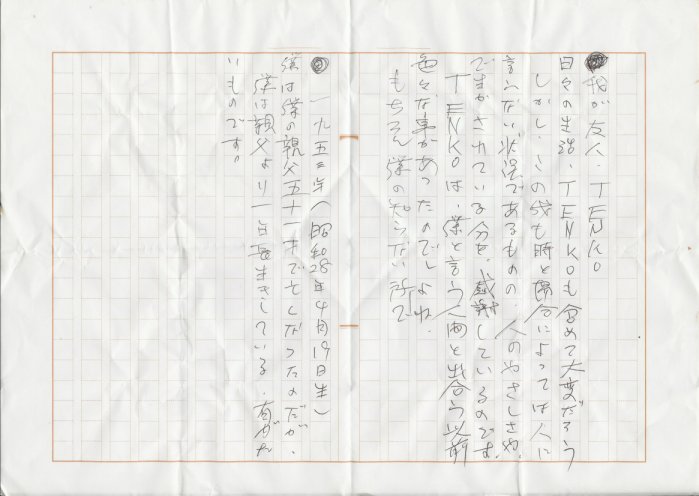 我が友人・TENKO
日々の生活、TENKOも含めて大変だろう
しかし、この我も時と場合によっては人に
言えない状況であるものの、人のやさしさや、
で生かされている分を、感謝しているのです。
TENKOは、僕と言う人間と出合う以前
色々な事があったのでしょね、
もちろん僕の知らない所で
一九五三年(昭和28年4月19日生)
僕は僕の親父五十一才で亡くなったのだが、
僕は親父より一日長生きしている、有がた
いものです。